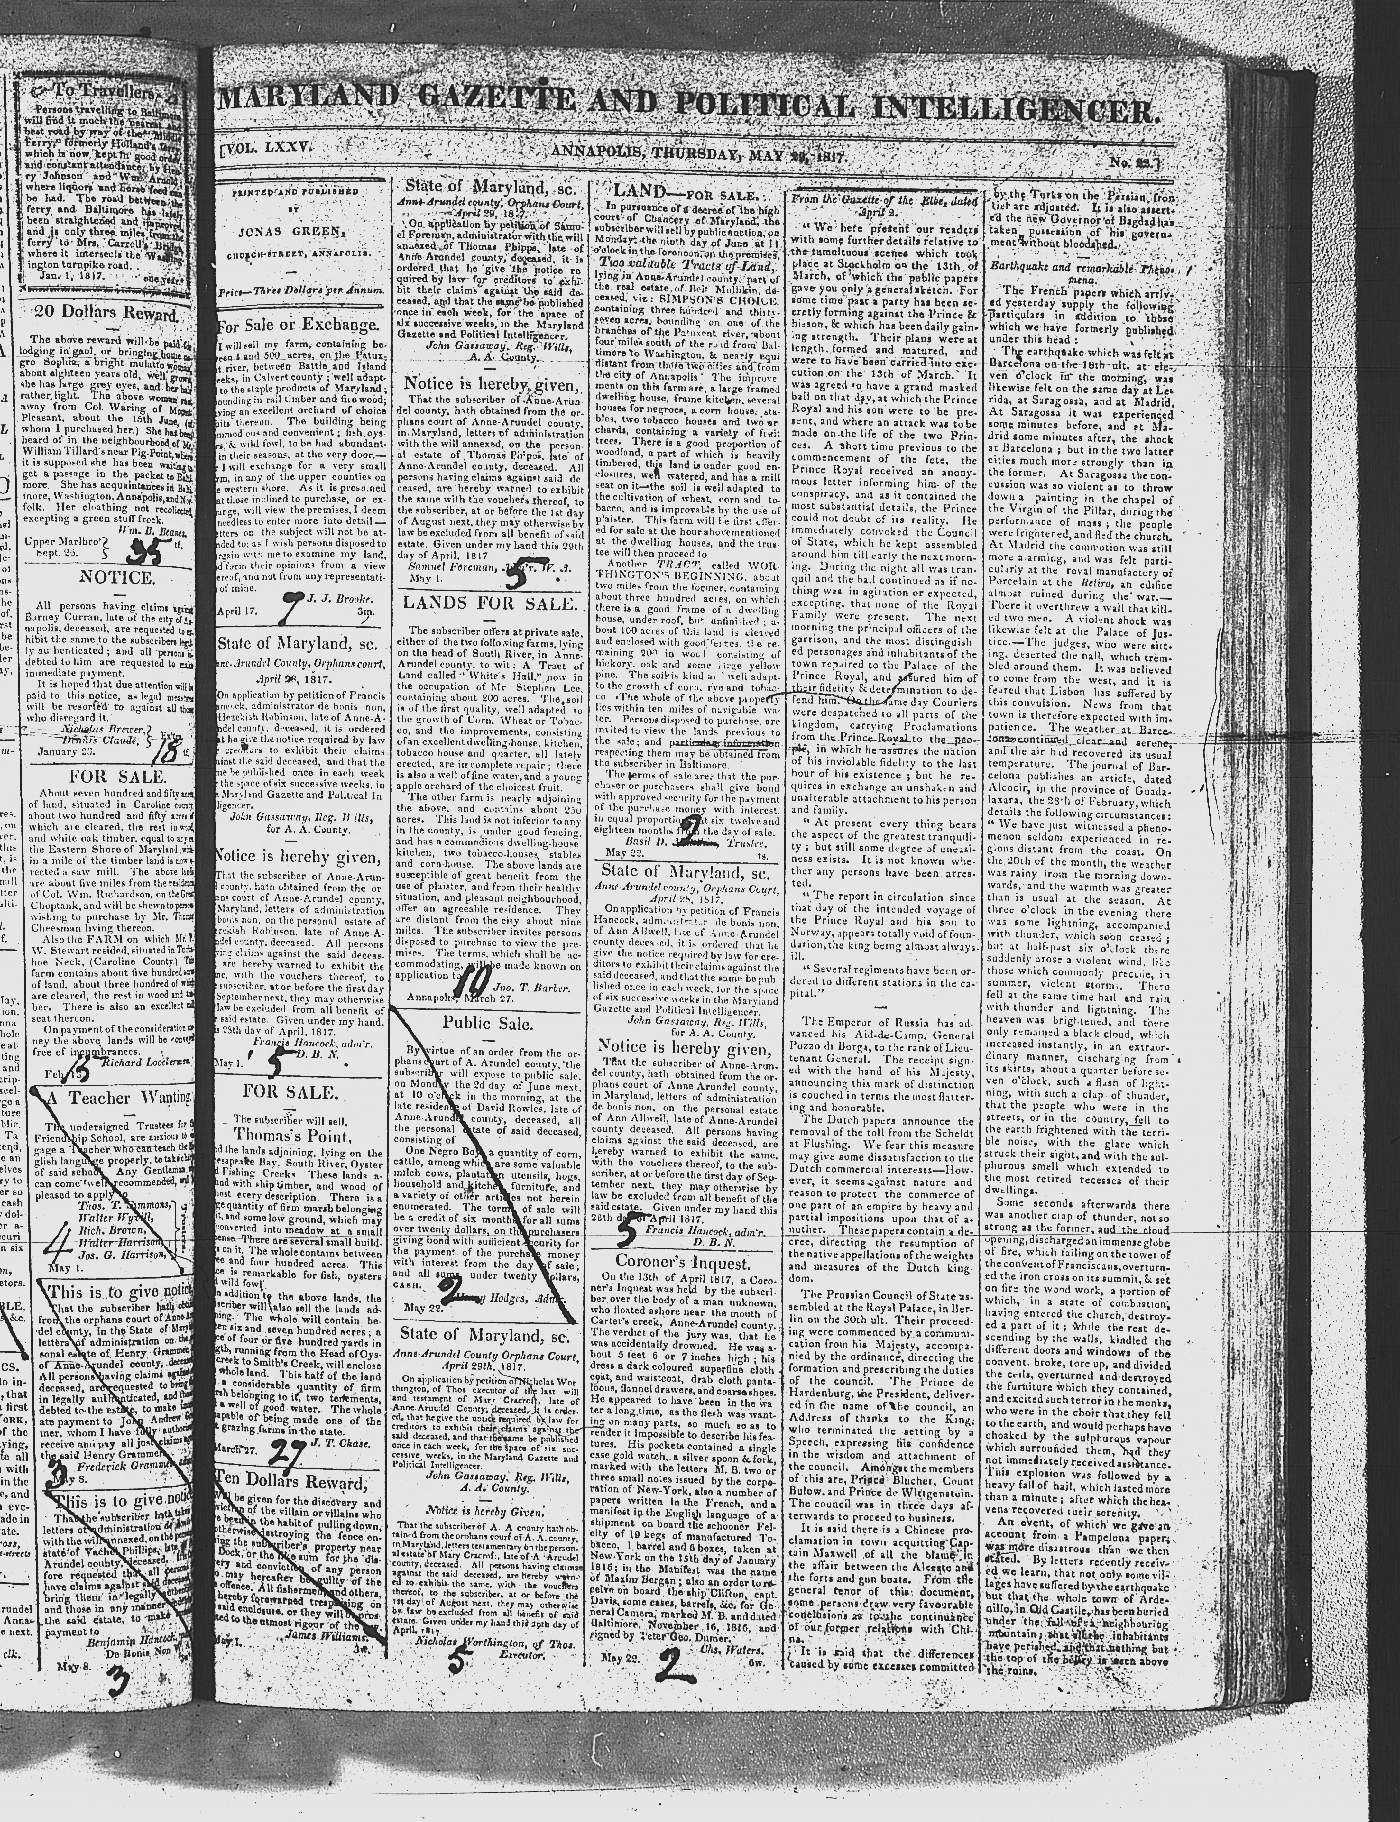 To Travellers,
Persons travelling to Baltimore
will find it much the nearest and
best road by way of the "Middle
Ferry," formerly Holland's ferry,
which is now kept in good order,
and constant attendance, by Hen-
ry Johnson and Wm. Arnold,
where liquors and horse feed can
be had. The road between the
ferry and Baltimore has lately
been straightened and improved,
and is only three miles from the
ferry to Mrs. Carroll's Bridge,
where it intersects the Wash-
ington turnpike road.
Jan. 1, 1817.
20 Dollars Reward.
The above reward will be paid for
lodging in gaol, or bringing home
gro Sophia, a bright mulatto woman
about eighteen years old, well grown,
she has large grey eyes, and her hair
rather light. The above woman ran
away from Col Waring of Mount
Pleasant, about the 15th June, (of
whom I purchased her.) She has been
heard of in the neighbourhood of Mr.
William Tillard's near Pig-Point, where
it is supposed she has been waiting to
get a passage in the packet to Balti-
more. She has acquaintances in Balti-
more, Washington, Annapolis, and Nor-
folk. Her cloathing not recollected,
excepting a green stuff frock.
Wm. B. Beanes.
Upper Marlbro'
Sept. 26.
35 tf.
NOTICE.
All persons having claims against
Barney Curran, late of the city of An-
napolis, deceased, are requested to ex-
hibit the same to the subscribers legal-
ly authenticated; and all persons in-
debted to him are requested to make
immediate payment.
It is hoped that due attention will be
paid to this notice, as legal measures
will be resorted to against all those
who disregard it.
Nicholas Brewer,
Dennis Claude,
January 23.
18
FOR SALE.
About seven hundred and fifty acres
of land, situated in Caroline county,
about two hundred and fifty acres of
which are cleared, the rest in wood,
and white oak timber, equal to any on
the Eastern Shore of Maryland, with-
in a mile of the timber land is now e-
rected a saw mill. The above lands
are about five miles from the residence
of Col. Wm. Richardson, on the Great
Choptank, and will be shewn to persons
wishing to purchase by Mr. Thomas
Cheesman living thereon.
Also the FARM on which
W. Stewart resided, situated in Tucka-
hoe Neck, (Caroline County.) This
farm contains about five hundred acres
of land, about three hundred of which
are cleared, the rest in wood and tim-
ber. There is also an excellent
seat thereon.
On payment of the consideration mo-
ney the above lands will be conveyed
free of incumbrances.
Richard Lockerman
Feb. 13
15
A Teacher Wanting.
The undersigned Trustees for the
Friendship School, are anxious to en-
gage a Teacher who can teach the En-
glish language properly, to take charge
of said school. Any Gentleman who
can come well recommended, will
please to apply to
Thos. T. Simmons,
Walter Wyvill,
Rich. Brown,
Walter Harrison,
Jos. G. Harrison,
May 1.
4
This is to give notice,
That the subscriber hath obtained
from the orphans court of Anne-Arun-
del county, in the State of Maryland,
letters of administration on the per-
sonal estate of Henry Grammer, late
of Anne-Arundel county, deceased.
All persons having claims against said
deceased, are requested to bring them
in legally authenticated, and those in-
debted to the estate, to make immedi-
ate payment to John Andrew Gram-
mer, whom I have fully authorised to
receive and pay all just claims against
the said Henry Grammer.
Frederick Grammer,
May 8.
3
This is to give notice,
That the subscriber hath taken
letters of administration de bonis non
with the will annexed, on the personal
estate of Vachel Phillips, late of Anne-
Arundel county, deceased, he there-
fore requested that all persons who
have claims against said deceased, to
bring them in legally authenticated,
and those in any manner indebted to
the said estate, to make immediate
payment to
Benjamin Hancock,
De Bonis Non
May 8.
3
MARYLAND GAZETTE AND POLITICAL INTELLIGENCER.
[VOL. LXXV.
ANNAPOLIS, THURSDAY, MAY 29, 1817.
No. 22.]
PRINTED AND PUBLISHED
BY
JONAS GREEN,
CHURCH-STREET, ANNAPOLIS.
Price—Three Dollars per Annum.
For Sale or Exchange.
I will sell my farm, containing be-
tween 4 and 500 acres, on the Patux-
ent river, between Battle and Island
creeks, in Calvert county; well adapted
to the staple products of Maryland,
abounding in rail timber and fire wood;
having an excellent orchard of choice
fruits thereon. The building being
commodious and convenient; fish, oys-
ters, & wild fowl, to be had abundant-
ly in their seasons, at the very door.—
I will exchange for a very small
farm, in any of the upper counties on
the western shore. As it is presumed
that those inclined to purchase, or ex-
change, will view the premises, I deem
it needless to enter more into detail—
Letters on the subject will not be at-
tended to; as I wish persons disposed to
bargain with me to examine my land,
and form their opinions from a view
thereof, and not from any representati-
on of mine.
J. J. Brooke.
April 17.
9
3m.
State of Maryland, sc.
Anne-Arundel County, Orphans court,
April 28, 1817.
On application by petition of Francis
Hancock, administrator de bonis non,
of Hezekiah Robinson, late of Anne-A-
rundel county, deceased, it is ordered
that he give the notice required by law
for creditors to exhibit their claims
against the said deceased, and that the
same be published once in each week
for the space of six successive weeks, in
the Maryland Gazette and Political In-
telligencer.
John Gassaway, Reg. Wills,
for A. A. County.
Notice is hereby given,
That the subscriber of Anne-Arun-
del county, hath obtained from the or-
phans court of Anne-Arundel county,
in Maryland, letters of administration
de bonis non, on the personal estate of
Hezekiah Robinson, late of Anne-A-
rundel county, deceased. All persons
having claims against the said deceas-
ed, are hereby warned to exhibit the
same, with the vouchers thereof, to
the subscriber, at or before the first day
of September next, they may otherwise
by law be excluded from all benefit of
the said estate. Given under my hand
this 28th day of April, 1817.
Francis Hancock, adm'r.
D. B. N.
May 1.
5
FOR SALE.
The subscriber will sell,
Thomas's Point,
and the lands adjoining, lying on the
Chesapeake Bay, South River, Oyster
and Fishing Creeks. These lands a-
bound with ship timber, and wood of
almost every description. There is a
large quantity of firm marsh belonging
to it, and some low ground, which may
be converted into meadow at a small
expense. There are several small build-
ings on it. The whole contains between
three and four hundred acres. This
place is remarkable for fish, oysters
and wild fowl.
In addition to the above lands, the
subscriber will also sell the lands ad-
joining. The whole will contain be-
tween six and seven hundred acres; a
fence of four or five hundred yards in
length, running from the Head of Oys-
ter creek to Smith's Creek, will enclose
the whole land. This half of the land
has a considerable quantity of firm
marsh belonging to it, two tenements,
and a well of good water. The whole
is capable of being made one of the
best grazing farms in the state.
J. T. Chase.
March 27.
27
Ten Dollars Reward,
Will be given for the discovery and
conviction of the villain or villains who
have been in the habit of pulling down,
or otherwise destroying the fence on-
closing the subscriber's property near
the Dock, or the like sum for the dis-
covery and conviction of any person
who may hereafter be guilty of the
like offence. All fishermen and others,
are hereby forewarned trespassing on
the said enclosure, or they will be pros-
ecuted to the utmost rigour of the law.
James Williams.
May 1.
State of Maryland, sc.
Anne-Arundel county, Orphans Court,
April 29, 1817.
On application by petition of Samu-
el Foreman, administrator with the will
annexed, of Thomas Phipps, late of
Anne-Arundel county, deceased, it is
ordered that he give the notice re-
quired by law for creditors to exhi-
bit their claims against the said de-
ceased, and that the same be published
once in each week, for the space of
six successive weeks, in the Maryland
Gazette and Political Intelligencer.
John Gassaway, Reg. Wills,
A. A. County.
Notice is hereby given,
That the subscriber of Anne-Arun-
del county, hath obtained from the or-
phans court of Anne-Arundel county,
in Maryland, letters of administration
with the will annexed, on the person-
al estate of Thomas Phipps, late of
Anne-Arundel county, deceased. All
persons having claims against said de-
ceased, are hereby warned to exhibit
the same with the vouchers thereof, to
the subscriber, at or before the 1st day
of August next, they may otherwise by
law be excluded from all benefit of said
estate. Given under my hand this 29th
day of April, 1817
Samuel Foreman, Adm'r. W. A.
May 1.
5
LANDS FOR SALE.
The subscriber offers at private sale,
either of the two following farms, lying
on the head of South River, in Anne-
Arundel county, to wit: A Tract of
Land called "White's Hall," now in
the occupation of Mr. Stephen Lee,
containing about 200 acres. The soil
is of the first quality, well adapted to
the growth of Corn, Wheat or Tobac-
co, and the improvements, consisting
of an excellent dwelling-house, kitchen,
tobacco house and quarter, all lately
erected, are in complete repair; there
is also a well of fine water, and a young
apple orchard of the choicest fruit.
The other farm is nearly adjoining
the above, and contains about 250
acres. This land is not inferior to any
in the county, is under good fencing,
and has a commodious dwelling-house
kitchen, two tobacco-houses, stables
and corn-house. The above lands are
susceptible of great benefit from the
use of plaister, and from their healthy
situation, and pleasant neighbourhood,
offer an agreeable residence. They
are distant from the city about nine
miles. The subscriber invites persons
disposed to purchase to view the pre-
mises. The terms, which shall be ac-
commodating, will be made known on
application to
Jno. T. Barber.
Annapolis, March 27.
10
Public Sale.
By virtue of an order from the or-
phans court of A. Arundel county, the
subscriber will expose to public sale,
on Monday the 2d day of June next,
at 10 o'clock in the morning, at the
late residence of David Rowles, late of
Anne-Arundel county, deceased, all
the personal estate of said deceased,
consisting of
One Negro Boy, a quantity of corn,
cattle, among which are some valuable
milch cows, plantation utensils, hogs,
household and kitchen furniture, and
a variety of other articles not herein
enumerated. The terms of sale will
be a credit of six months for all sums
over twenty dollars, on the purchasers
giving bond with sufficient security for
the payment of the purchase money
with interest from the day of sale;
and all sums under twenty dollars,
CASH.
Hodges, Adm'r.
May 22.
2
State of Maryland, sc.
Anne-Arundel County Orphans Court,
April 29th, 1817.
On application by petition of Nicholas Wor-
thington, of Thos executor of the last will
and testament of Mary Cracroft, late of
Anne-Arundel County, deceased, it is order-
ed, that he give the notice required by law for
creditors to exhibit their claims against the
said deceased, and that the same be published
once in each week, for the space of six suc-
cessive weeks, in the Maryland Gazette and
Political Intelligencer.
John Gassaway, Reg. Wills,
A. A. County.
Notice is hereby Given,
That the subscriber of A. A. county hath ob-
tained from the orphans court of A. A. county,
in Maryland, letters testamentary on the person-
al estate of Mary Cracroft, late of A. Arundel
county, deceased. All persons having claims
against the said deceased, are hereby warn-
ed to exhibit the same, with the vouchers
thereof, to the subscriber, at or before the
1st day of August next, they may otherwise
by law be excluded from all benefit of said
estate. Given under my hand this 29th day of
April, 1817
Nicholas Worthington, of Thos.
Executor.
5
LAND—FOR SALE.
In pursuance of a decree of the high
court of Chancery of Maryland, the
subscriber will sell by public auction, on
Monday the ninth day of June at 11
o'clock in the forenoon, on the premises,
Two valuable Tracts of Land,
lying in Anne-Arundel county, part of
the real estate, of Belt Mullikin, de-
ceased, viz: SIMPSON'S CHOICE,
containing three hundred and thirty-
seven acres, bounding on one of the
branches of the Patuxent river, about
four miles south of the road from Bal-
timore to Washington, & nearly equi
distant from those two cities and from
the city of Annapolis. The improve
ments on this farm are, a large framed
dwelling house, frame kitchen, several
houses for negroes, a corn house, sta-
bles, two tobacco houses and two or-
chards, containing a variety of fruit
trees. There is a good proportion of
woodland, a part of which is heavily
timbered, this land is under good en-
closures, well watered, and has a mill
seat on it—the soil is well adapted to
the cultivation of wheat, corn and to-
bacco, and is improvable by the use of
plaister. This farm will be first offer-
ed for sale at the hour abovementioned
at the dwelling house, and the trus-
tee will then proceed to
Another TRACT, called WOR-
THINGTON'S BEGINNING, about
two miles from the former, containing
about three hundred acres, on which
there is a good frame of a dwelling
house, under roof, but unfinished; a-
bout 100 acres of this land is cleared
and enclosed with good fences, the re-
maining 200 in wood consisting of
hickory, oak and some large yellow
pine. The soil is kind and well adapt-
ed to the growth of corn, rye and tobac-
co. The whole of the above property
lies within ten miles of navigable wa-
ter. Persons disposed to purchase, are
invited to view the lands previous to
the sale; and particular information
respecting them may be obtained from
the subscriber in Baltimore.
The terms of sale are: that the pur-
chaser or purchasers shall give bond
with approved security for the payment
of the purchase money with interest,
in equal proportions at six twelve and
eighteen months from the day of sale.
Basil D. Trustee.
May 22.
2
ts.
State of Maryland, sc.
Anne Arundel county, Orphans Court,
April 28, 1817.
On application by petition of Francis
Hancock, administrator de bonis non,
of Ann Allwell, late of Anne-Arundel
county deceased, it is ordered that he
give the notice required by law for cre-
ditors to exhibit their claims against the
said deceased, and that the same be pub
lished once in each week, for the space
of six successive weeks in the Maryland
Gazette and Political Intelligencer.
John Gassaway, Reg. Wills,
for A. A. County.
Notice is hereby given,
That the subscriber of Anne-Arun-
del county, hath obtained from the or-
phans court of Anne-Arundel county,
in Maryland, letters of administration
de bonis non, on the personal estate
of Ann Allwell, late of Anne-Arundel
county deceased. All persons having
claims against the said deceased, are
hereby warned to exhibit the same,
with the vouchers thereof, to the sub-
scriber, at or before the first day of Sep-
tember next, they may otherwise by
law be excluded from all benefit of the
said estate. Given under my hand this
28th day of April 1817.
Francis Hancock, adm'r.
D. B. N.
5
Coroner's Inquest.
On the 13th of April 1817, a Coro-
ner's Inquest was held by the subscri-
ber over the body of a man unknown,
who floated ashore near the mouth of
Carter's creek, Anne-Arundel county.
The verdict of the jury was, that he
was accidentally drowned. He was a-
bout 5 feet 6 or 7 inches high; his
dress a dark coloured superfine cloth
coat, and waistcoat, drab cloth panta-
loons, flannel drawers, and coarse shoes.
He appeared to have been in the wa-
ter a long time, as the flesh was want-
ing on many parts, so much so as to
render it impossible to describe his fea-
tures. His pockets contained a single
case gold watch, a silver spoon & fork,
marked with the letters M. B. two or
three small notes issued by the corpo-
ration of New-York, also a number of
papers written in the French, and a
manifest in the English language of a
shipment on board the schooner Fel-
city of 19 kegs of manufactured To-
bacco, 1 barrel and 6 boxes, taken at
New-York on the 15th day of January
1816; in the Manifest was the name
of Maxim Bergan; also an order to re-
ceive on board the ship Clifton, capt.
Davis, some cases, barrels, &c. for Ge
neral Camera, marked M. B. and dated
Baltimore, November 16, 1816, and
signed by Peter Geo. Dumer.
Chs. Waters.
May 22.
2
6w.
From the Gazette of the Elbe, dated
April 2.
"We here present our readers
with some further details relative to
the tumultuous scenes which took
place at Stockholm on the 13th of
March, of which the public papers
gave you only a general sketch. For
some time past a party has been se-
cretly forming against the Prince &
his son, & which has been daily gain-
ing strength. Their plans were at
length formed and matured, and
were to have been carried into exe-
cution on the 13th of March. It
was agreed to have a grand masked
ball on that day, at which the Prince
Royal and his son were to be pre-
sent, and where an attack was to be
made on the life of the two Prin-
ces. A short time previous to the
commencement of the fete, the
Prince Royal received an anony-
mous letter informing him of the
conspiracy, and as it contained the
most substantial details, the Prince
could not doubt of its reality. He
immediately convoked the Council
of State, which he kept assembled
around him till early the next morn-
ing. During the night all was tran-
quil and the ball continued as if no-
thing was in agitation or expected,
excepting, that none of the Royal
Family were present. The next
morning the principal officers of the
garrison, and the most distinguish-
ed personages and inhabitants of the
town repaired to the Palace of the
Prince Royal, and assured him of
their fidelity & determination to de-
fend him. On the same day Couriers
were despatched to all parts of the
kingdom, carrying Proclamations
from the Prince Royal to the peo-
ple, in which he assures the nation
of his inviolable fidelity to the last
hour of his existence; but he re-
quires in exchange an unshaken and
unalterable attachment to his person
and family.
"At present every thing bears
the aspect of the greatest tranquili-
ty; but still some degree of uneasi-
ness exists. It is not known whe-
ther any persons have been arres-
ted.
"The report in circulation since
that day of the intended voyage of
the Prince Royal and his son to
Norway, appears totally void of foun-
dation, the king being almost always
ill.
"Several regiments have been or-
dered to different stations in the ca-
pital."
The Emperor of Russia has ad-
vanced his Aid-de-Camp, General
Puzzo di Borgo, to the rank of Lieu-
tenant General. The receipt sign-
ed with the hand of his Majesty,
announcing this mark of distinction
is couched in terms the most flatter-
ing and honorable.
The Dutch papers announce the
removal of the toll from the Scheldt
at Flushing. We fear this measure
may give some dissatisfaction to the
Dutch commercial interests—How-
ever, it seems against nature and
reason to protect the commerce of
one part of an empire by heavy and
partial impositions upon that of a-
nother. These papers contain a de-
cree, directing the resumption of
the native appellations of the weights
and measures of the Dutch king-
dom.
The Prussian Council of State as-
sembled at the Royal Palace, in Ber-
lin on the 30th ult. Their proceed-
ing were commenced by a communi-
cation from his Majesty, accompa-
nied by the ordinance, directing the
formation and prescribing the duties
of the council. The Prince de
Hardenburg, the President, deliver-
ed in the name of the council, an
Address of thanks to the King,
who terminated the setting by a
Speech, expressing his confidence
in the wisdom and attachment of
the council. Amongst the members
of this are, Prince Blucher, Count
Bulow, and Prince de Witgenstein.
The council was in three days af-
terwards to proceed to business.
It is said there is a Chinese pro-
clamation in town acquitting Cap-
tain Maxwell of all the blame in
the affair between the Alceste and
the forts and gun boats. From the
general tenor of this document,
some persons draw very favourable
conclusions as to the continuance
of our former relations with Chi-
na.
It is said that the differences
caused by some excesses committed
by the Turks on the Persian, fron-
tier are adjusted. It is also assert-
ed the new Governor of Bagdad has
taken possession of his govern-
ment without bloodshed.
Earthquake and remarkable Pheno-
mena.
The French papers which arriv-
ed yesterday supply the following
particulars in addition to those
which we have formerly published
under this head:
The earthquake which was felt at
Barcelona on the 18th ult. at ele-
ven o'clock in the morning, was
likewise felt on the same day at Le-
rida, at Saragossa, and at Madrid.
At Saragossa it was experienced
some minutes before, and at Ma-
drid some minutes after, the shock
at Barcelona; but in the two latter
cities much more strongly than in
the former. At Saragossa the con-
cussion was so violent as to throw
down a painting in the chapel of
the Virgin of the Pillar, during the
performance of mass; the people
were frightened, and fled the church.
At Madrid the commotion was still
more alarming, and was felt parti-
cularly at the royal manufactory of
Porcelain at the Retiro, an edifice
almost ruined during the war.—
There it overthrew a wall that kill-
ed two men. A violent shock was
likewise felt at the Palace of Jus-
tice.—The judges, who were sitt-
ing, deserted the hall, which trem-
bled around them. It was believed
to come from the west, and it is
feared that Lisbon has suffered by
this convulsion. News from that
town is therefore expected with im-
patience. The weather at Barce-
lona continued clear and serene,
and the air had recovered its usual
temperature. The journal of Bar-
celona publishes an article, dated
Alcocir, in the province of Guada-
laxara, the 28th of February, which
details the following circumstances:
"We have just witnessed a pheno-
menon seldom experienced in re-
gions distant from the coast. On
the 20th of the month, the weather
was rainy from the morning down-
wards, and the warmth was greater
than is usual at the season. At
three o'clock in the evening there
was some lightning, accompanied
with thunder, which soon ceased;
but at half-past six o'clock there
suddenly arose a violent wind, like
those which commonly precede, in
summer, violent storms. There
fell at the same time hail and rain
with thunder and lightning. The
heaven was brightened, and there
only remained a black cloud, which
increased instantly, in an extraor-
dinary manner, discharging from
its skirts, about a quarter before se-
ven o'clock, such a flash of light-
ning, with such a clap of thunder,
that the people who were in the
streets, or in the country, fell to
the earth frightened with the terri-
ble noise, with the glare which
struck their sight, and with the sul-
phurous smell which extended to
the most retired recesses of their
dwellings.
Some seconds afterwards there
was another clap of thunder, not so
strong as the former, and the cloud
opening, discharged an immense globe
of fire, which falling on the tower of
the convent of Franciscans, overturn-
ed the iron cross on its summit, & set
on fire the wood work, a portion of
which, in a state of combustion,
having entered the church, destroy-
ed a part of it; While the rest de-
scending by the walls, kindled the
different doors and windows of the
convent, broke, tore up, and divided
the cells, overturned and destroyed
the furniture which they contained,
and excited such terror in the monks,
who were in the choir that they fell
to the earth, and would perhaps have
choaked by the sulphurous vapour
which surrounded them, had they
not immediately received assistance.
This explosion was followed by a
heavy fall of hail, which lasted more
than a minute; after which the hea-
vens recovered their serenity.
An event, of which we give an
account from a Pampelona paper,
was more disastrous than we then
stated. By letters recently receiv-
ed we learn, that not only some vil-
lages have suffered by the earthquake
but that the whole town of Arne-
dillo, in Old Castile, has been buried
under the fall of a neighbouring
mountain; that all the inhabitants
have perished, and that nothing but
the top of the belfry is seen above
the ruins.